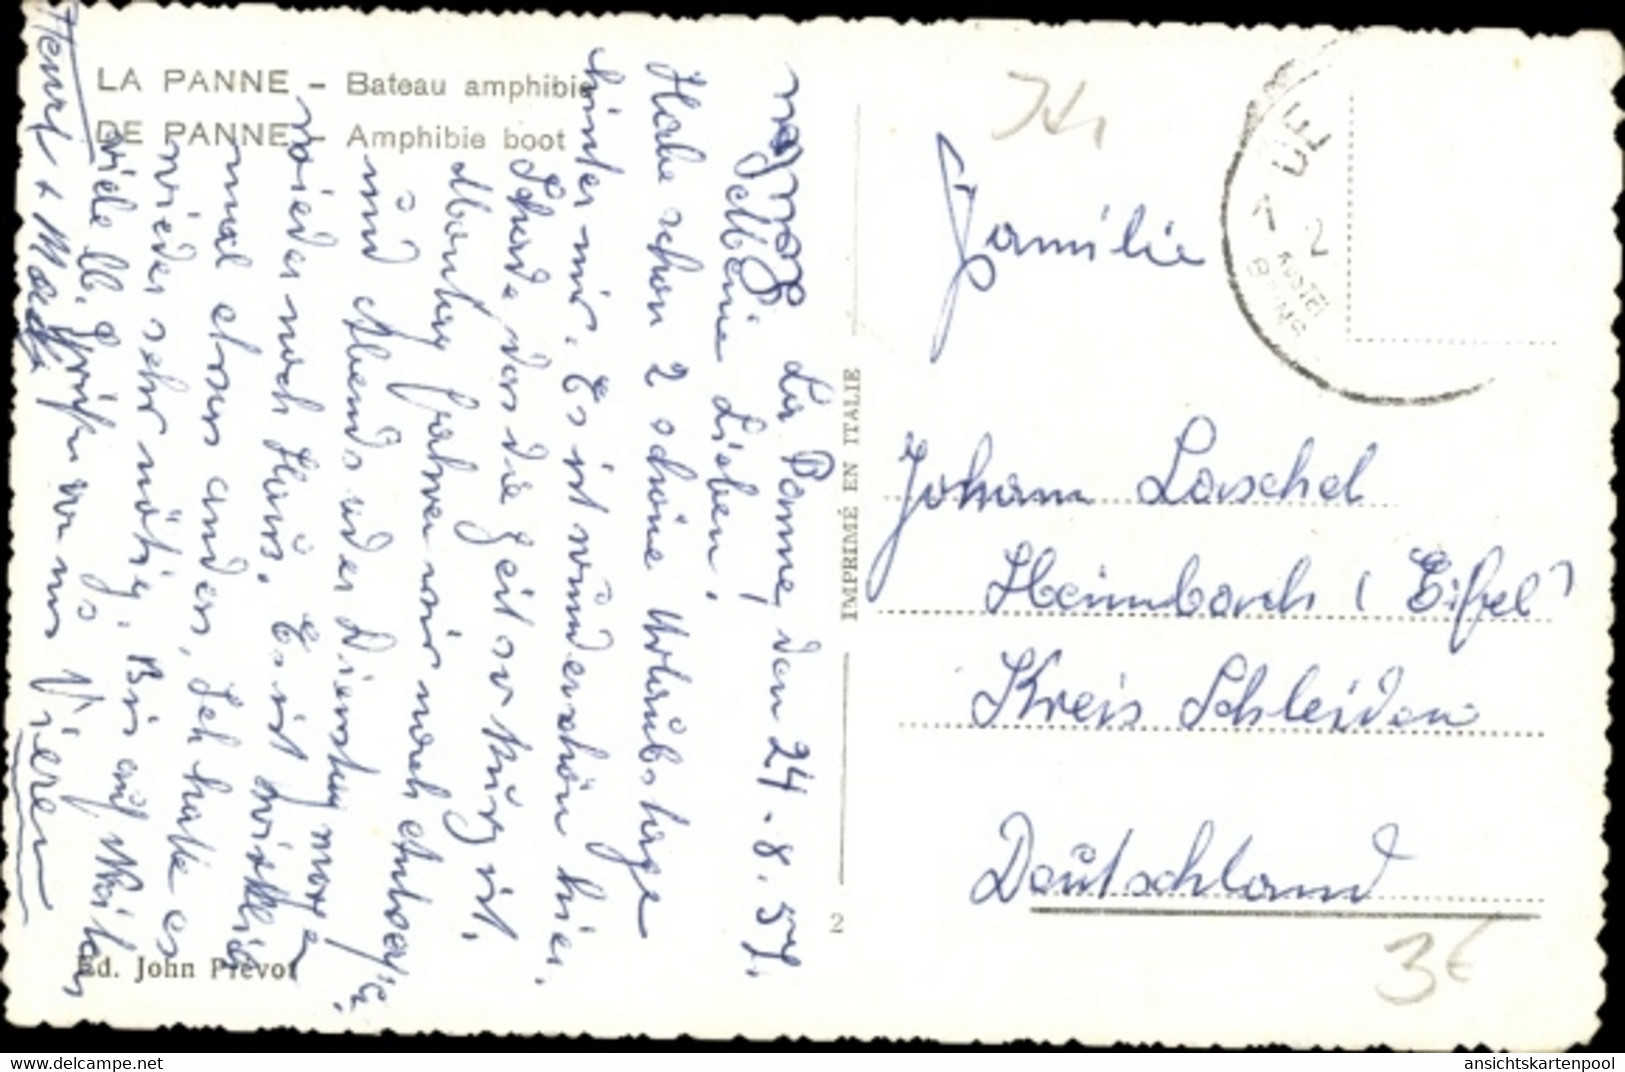 LA PANNE – Bateau amphibie
DE PANNE – Amphibie boot
La Panne, den 24.8.57.
Meine Lieben!
Habe schon 2 schöne Urlaubstage
hinter mir. Es ist wunderschön hier.
Schade das die Zeit so kurz ist.
Montag fahren wir nach
und Abends oder Dienstag morgen
wieder nach Haus. Es ist wirklich
mal etwas anders, Ich hatte es
wieder sehr nötig. Bis auf Weiteres
viele lb. Grüße von uns Vieren
Henri +
Ed. John Prevot
IMPRIMÉ EN ITALIE
2
DE
Familie
Johann Laschel
Heimbach (Eifel)
Kreis Schleiden
Deutschland
3€
www.delcampe.net
ansichtskartenpool